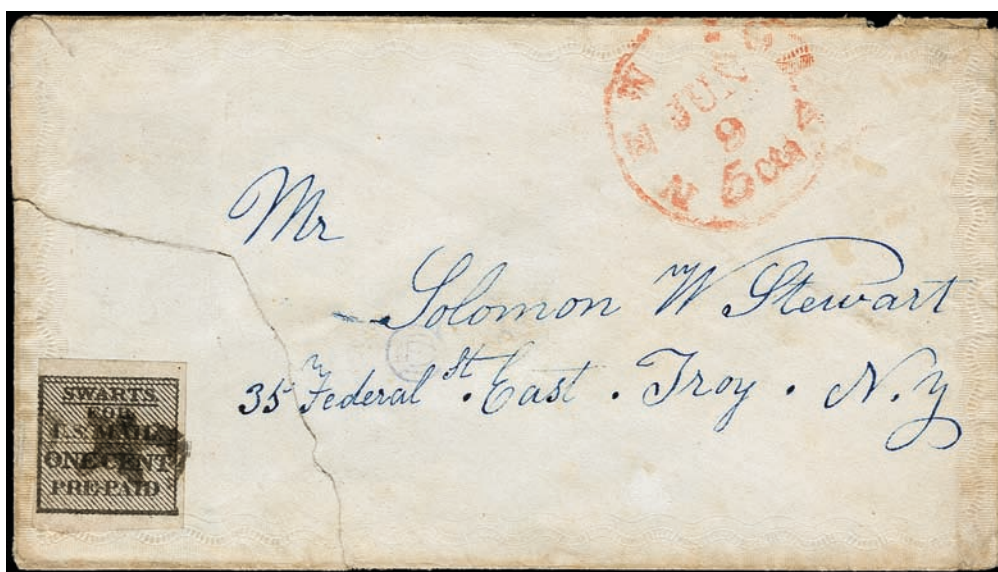 NEW YORK
JUN
9
5 cts
Mr
Solomon W Stewart
35 Federal St East . Troy . N.Y
SWARTS
FOR
U.S. MAIL
ONE CENT
PRE-PAID